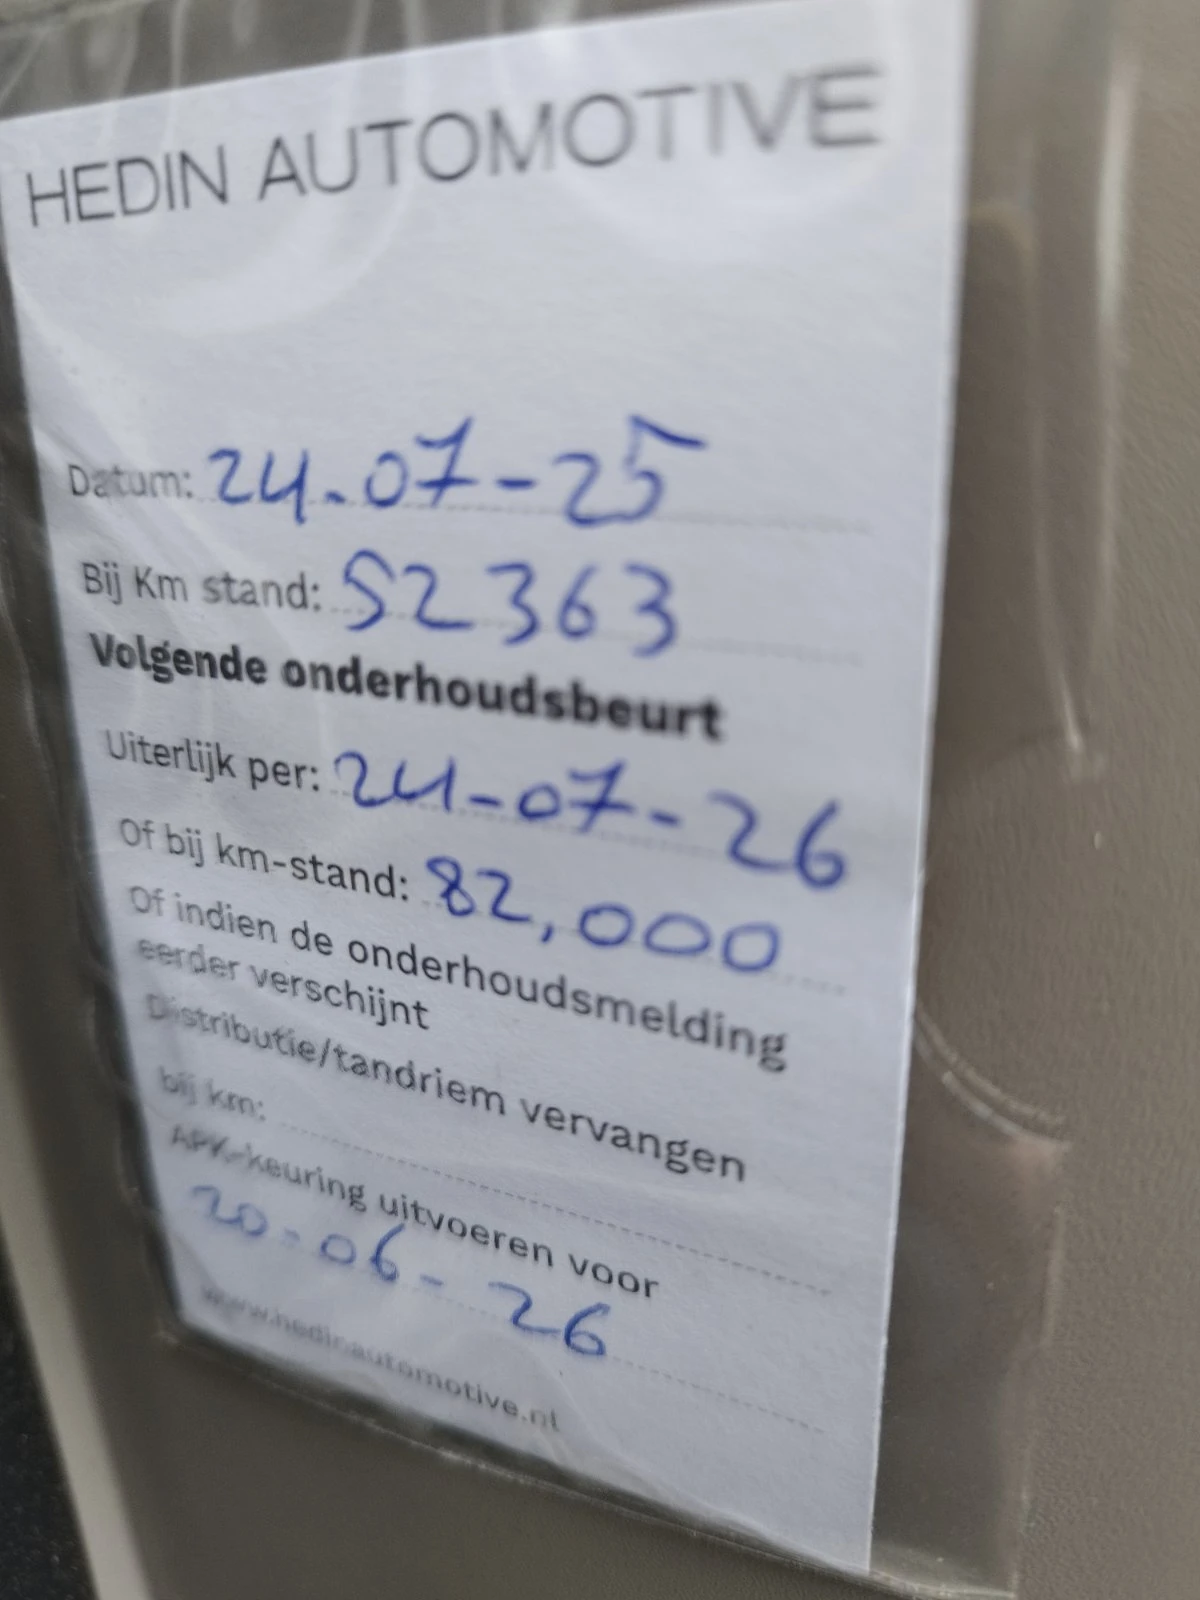 HEDIN AUTOMOTIVE
Datum: 24-07-25
Bij Km stand: 52363
Volgende onderhoudsbeurt
Uiterlijk per: 24-07-26
Of bij km-stand: 82,000
Of indien de onderhoudsmelding
eerder verschijnt
Distributie/tandriem vervangen
bij km:
APK-keuring uitvoeren voor
20-06-26
www.hedinautomotive.nl